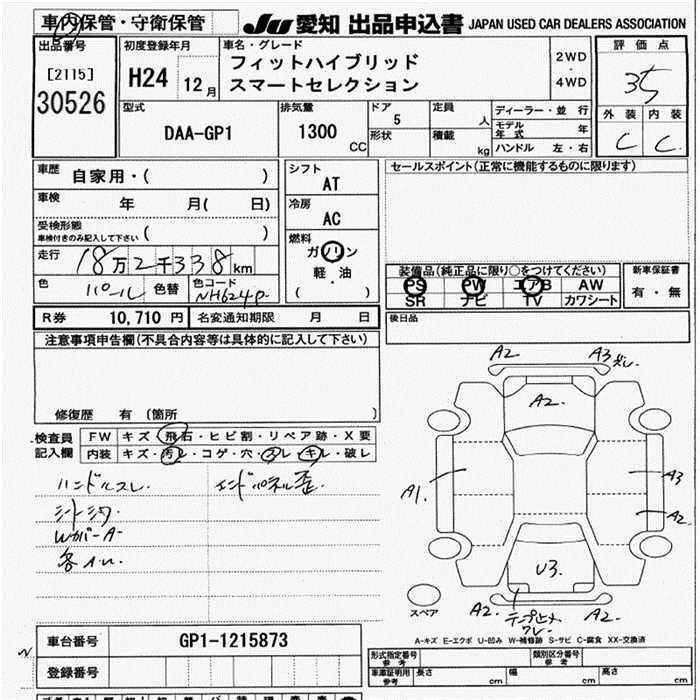 車内保管・守衛保管
JU 愛知 出品申込書 JAPAN USED CAR DEALERS ASSOCIATION
出品番号
[2115]
30526
初度登録年月
H24 12月
車名・グレード
フィットハイブリッド
スマートセレクション
2WD
・
4WD
評価点
3.5
外装 内装
C C
型式
DAA-GP1
排気量
1300 CC
ドア 5
形状
定員 人
積載 kg
ディーラー・並行
モデル年式 年
ハンドル 左・右
車歴 自家用・( )
車検 年 月( 日)
受検形態
車検付きのみ記入して下さい ( )
走行 18万2千338km
色 パール 色替 色コード NH624P
シフト
AT
冷房
AC
燃料
ガソリン
軽・油
( )
セールスポイント(正常に機能するものに限ります)
装備品(純正品に限り○をつけてください)
PS PW エアB AW
SR ナビ TV カワシート
新車保証書
有・無
R券 10,710円 名変通知期限 月 日
後日品
注意事項申告欄(不具合内容等は具体的に記入して下さい)
修復歴 有 〔箇所 〕
検査員
記入欄
FW キズ・飛石・ヒビ割・リペア跡・X要
内装 キズ・汚レ・コゲ・穴・スレ・キレ・破レ
ハンドルスレ
エンドパネル歪
シート汚
WカバーA
A2
A3
A2
A1
A3
A2
U3
A2
A2
スペア
A-キズ E-エクボ U-凹み W-補修跡 S-サビ C-腐食 XX-交換済
車台番号 GP1-1215873
登録番号
形式指定番号
参考
類別区分番号
参考
車庫証明用
参考
長さ cm 幅 cm 高さ cm